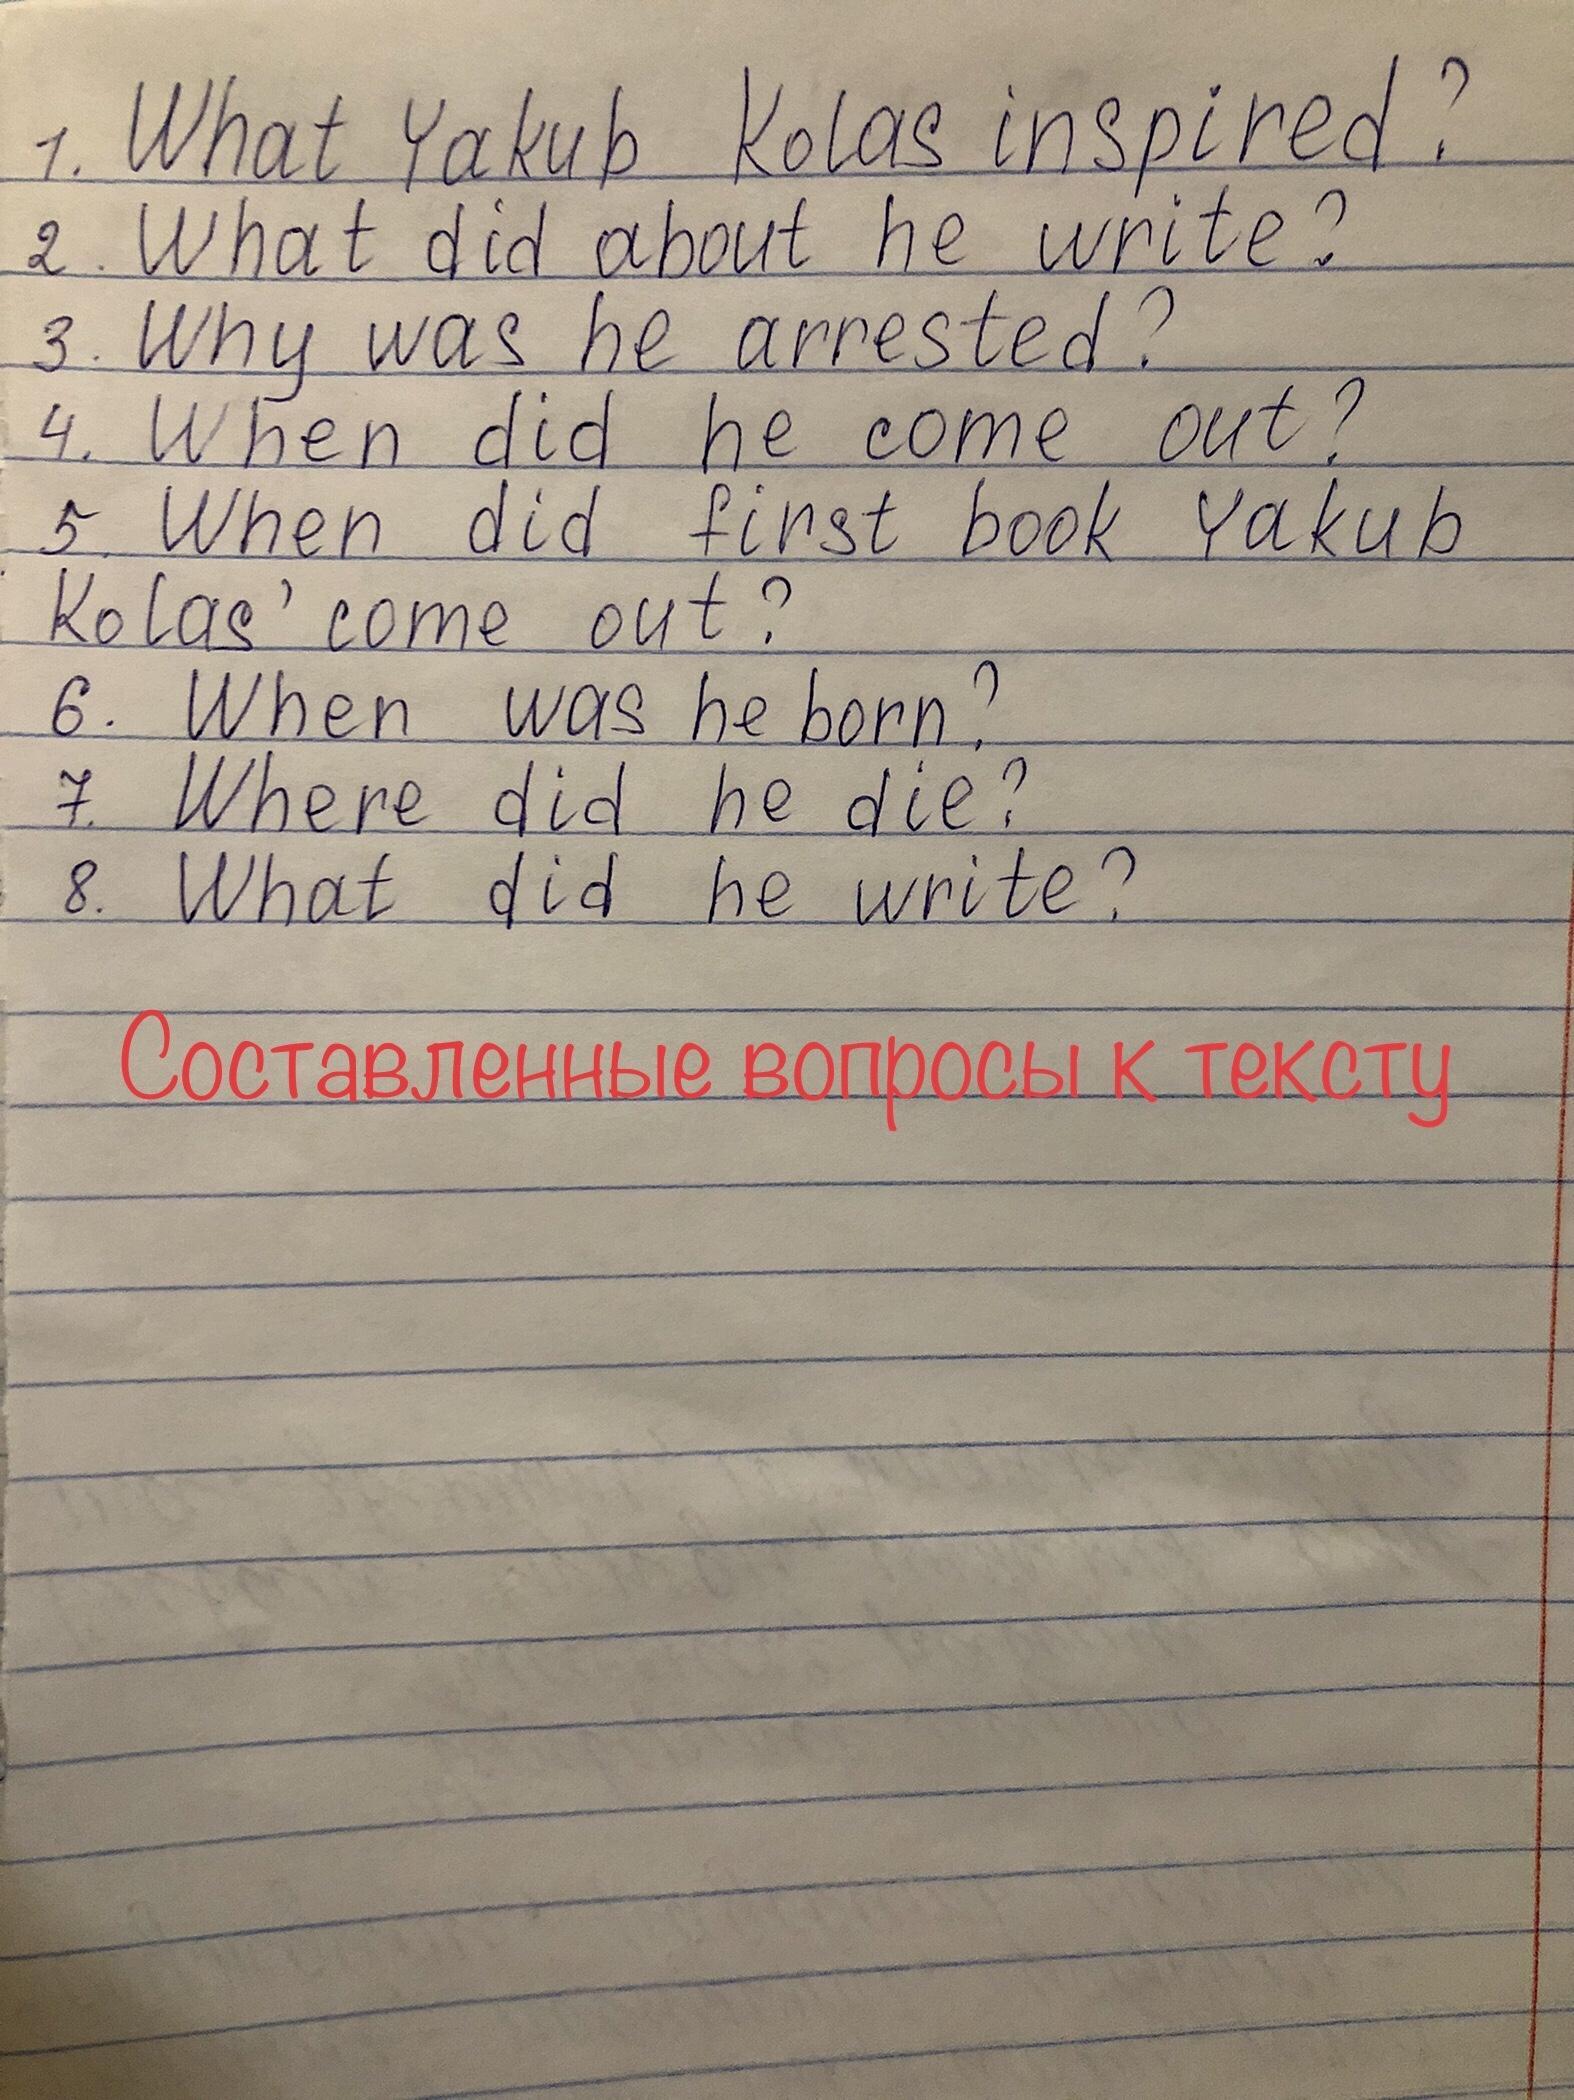 1. What Yakub Kolas inspired?
2. What did about he write?
3. Why was he arrested?
4. When did he come out?
5. When did first book Yakub
Kolas' come out?
6. When was he born?
7. Where did he die?
8. What did he write?
Составленные вопросы к тексту